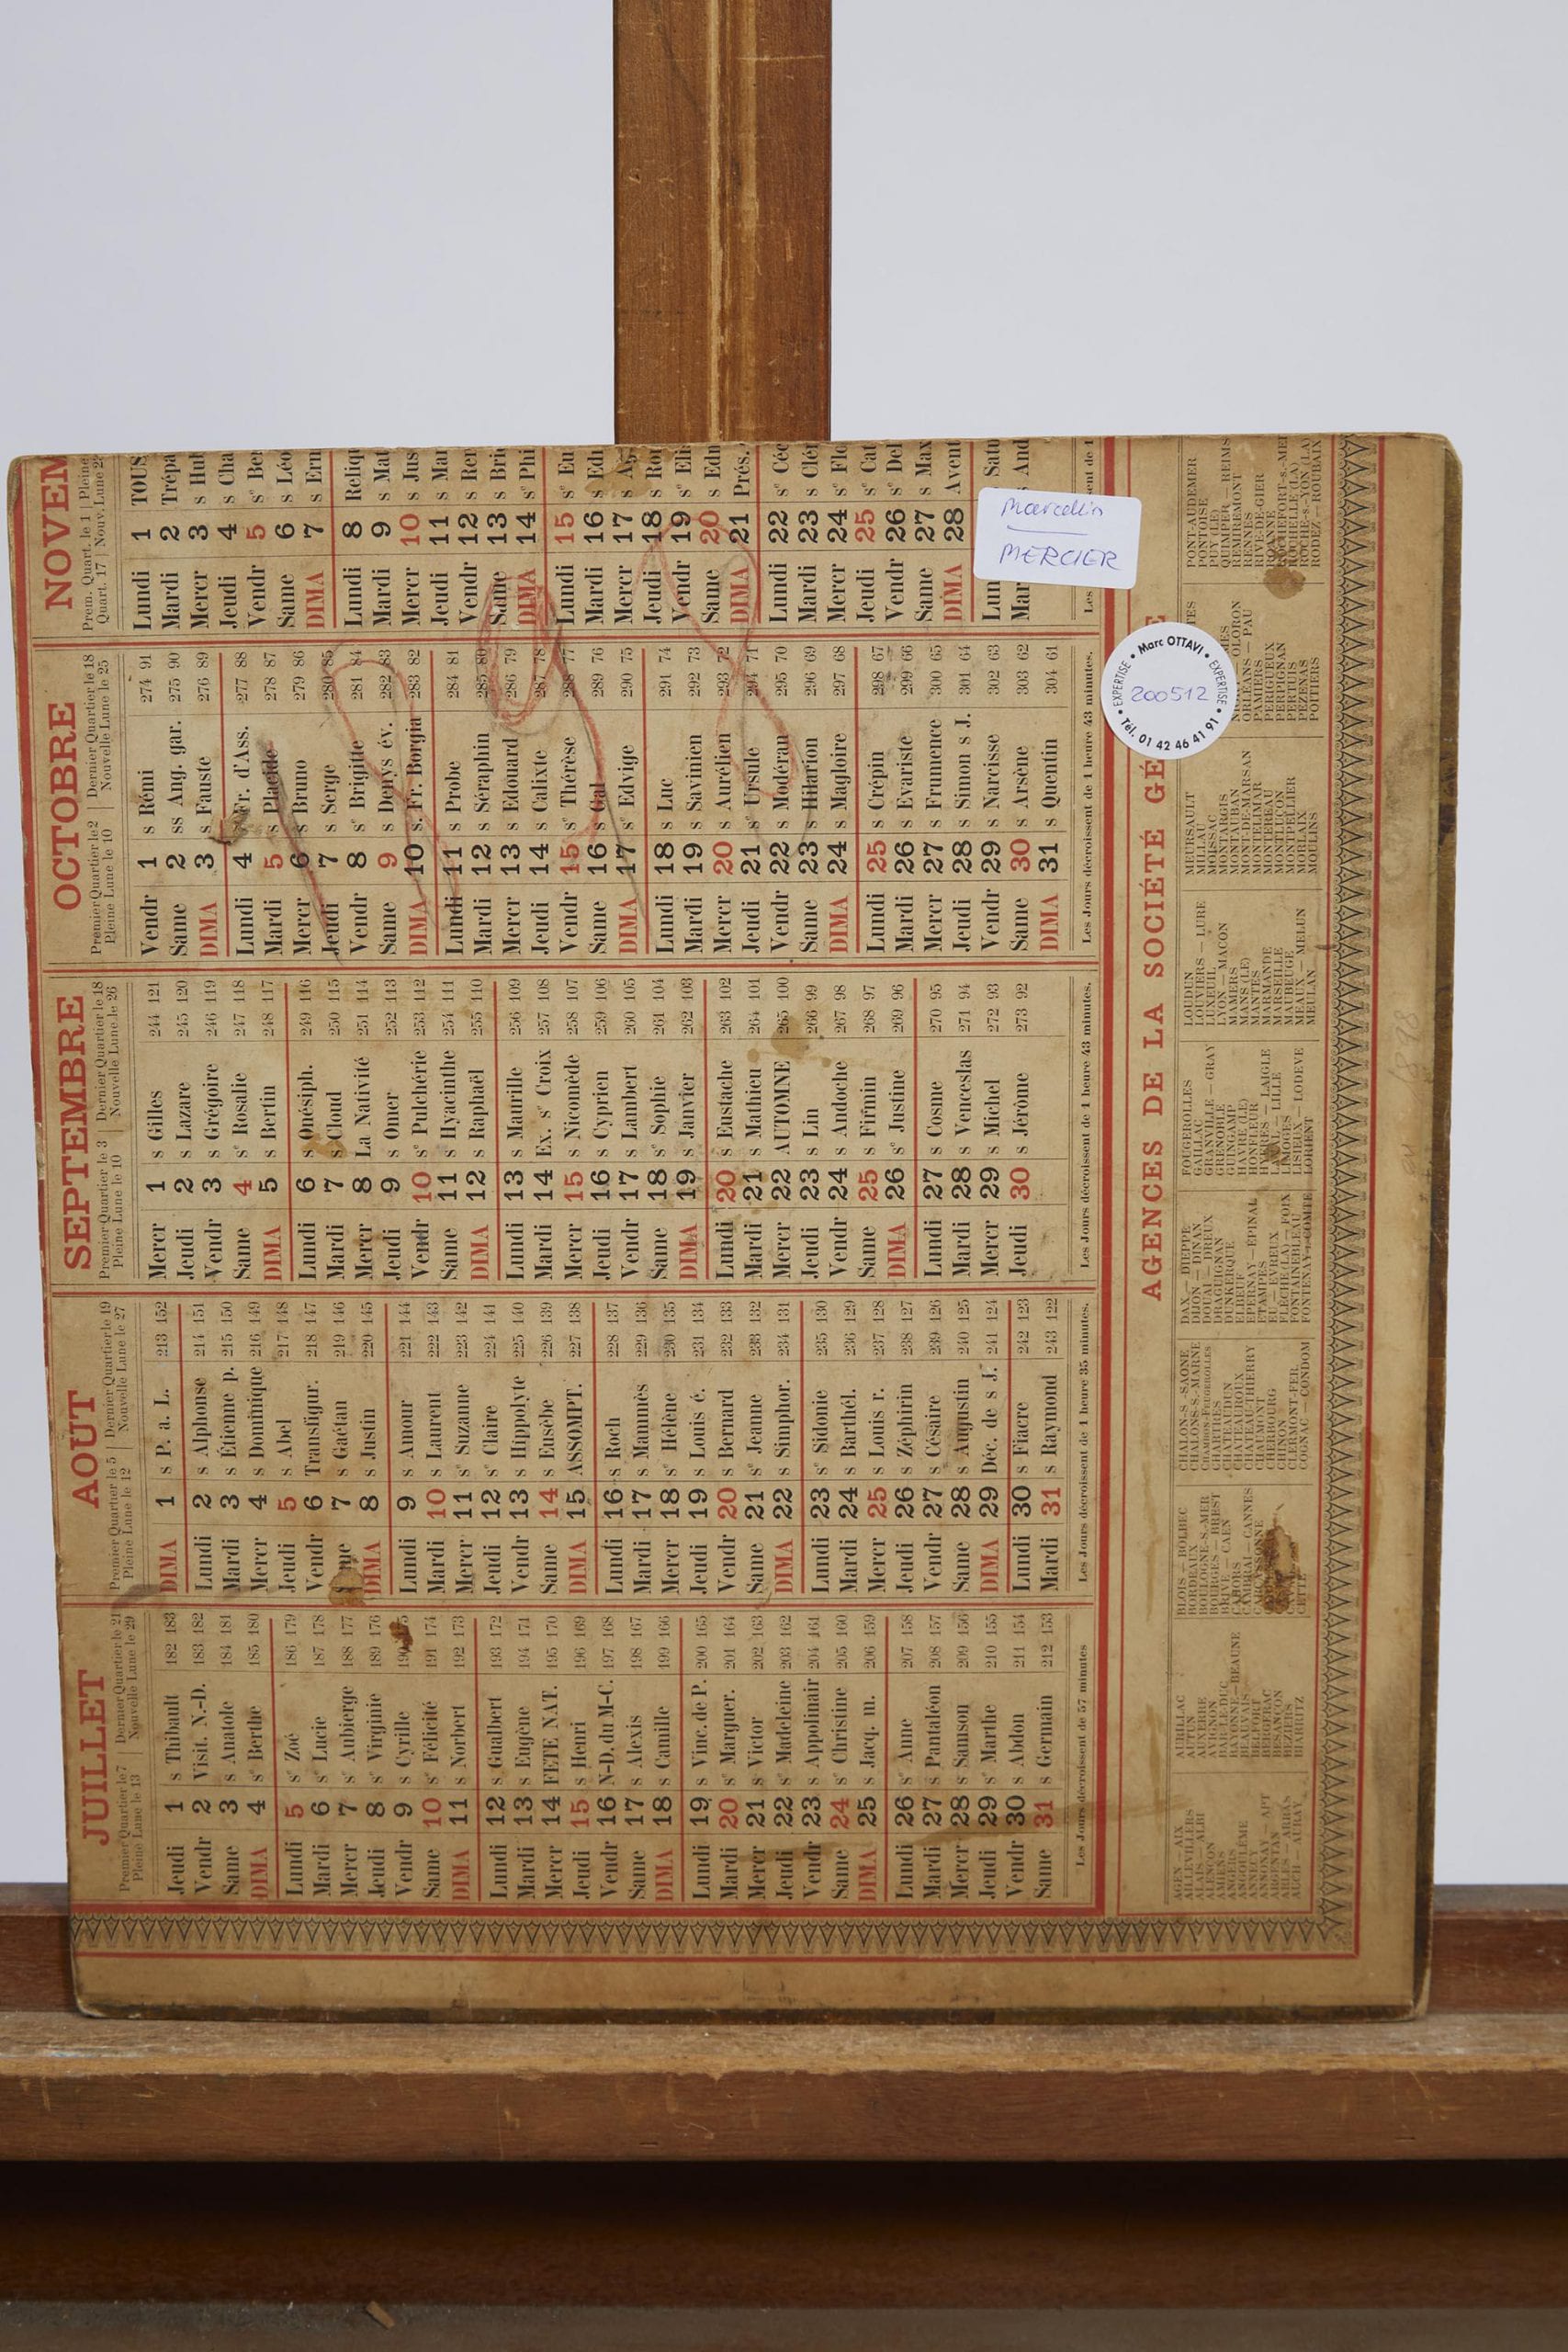 JUILLET
Premier Quartier le 7 | Dernier Quartier le 21
Pleine Lune le 13 | Nouvelle Lune le 29
Jeudi 1 s Thibault 182 183
Vendr 2 Visit. N.-D. 183 182
Same 3 s Anatole 184 181
DIMA 4 sᵉ Berthe 185 180
Lundi 5 sᵉ Zoé 186 179
Mardi 6 sᵉ Lucie 187 178
Mercr 7 sᵉ Aubierge 188 177
Jeudi 8 sᵉ Virginie 189 176
Vendr 9 s Cyrille 190 175
Same 10 sᵉ Félicité 191 174
DIMA 11 s Norbert 192 173
Lundi 12 s Gualbert 193 172
Mardi 13 s Eugène 194 171
Mercr 14 FETE NAT. 195 170
Jeudi 15 s Henri 196 169
Vendr 16 N-D. du M-C. 197 168
Same 17 s Alexis 198 167
DIMA 18 s Camille 199 166
Lundi 19 s Vinc. de P. 200 165
Mardi 20 sᵉ Marguer. 201 164
Mercr 21 s Victor 202 163
Jeudi 22 sᵉ Madeleine 203 162
Vendr 23 s Appolinair 204 161
Same 24 sᵉ Christine 205 160
DIMA 25 s Jacq. m. 206 159
Lundi 26 sᵉ Anne 207 158
Mardi 27 s Pantaléon 208 157
Mercr 28 s Samson 209 156
Jeudi 29 sᵉ Marthe 210 155
Vendr 30 s Abdon 211 154
Same 31 s Germain 212 153
Les Jours décroissent de 57 minutes
AOUT
Premier Quartier le 5 | Dernier Quartier le 19
Pleine Lune le 12 | Nouvelle Lune le 27
DIMA 1 s P. a. L. 213 152
Lundi 2 s Alphonse 214 151
Mardi 3 s Étienne p. 215 150
Mercr 4 s Dominique 216 149
Jeudi 5 s Abel 217 148
Vendr 6 Transfigur. 218 147
Same 7 s Gaétan 219 146
DIMA 8 s Justin 220 145
Lundi 9 s Amour 221 144
Mardi 10 s Laurent 222 143
Mercr 11 sᵉ Suzanne 223 142
Jeudi 12 sᵉ Claire 224 141
Vendr 13 s Hippolyte 225 140
Same 14 s Eusèbe 226 139
DIMA 15 ASSOMPT. 227 138
Lundi 16 s Roch 228 137
Mardi 17 s Mammès 229 136
Mercr 18 sᵉ Hélène 230 135
Jeudi 19 s Louis é. 231 134
Vendr 20 s Bernard 232 133
Same 21 sᵉ Jeanne 233 132
DIMA 22 s Simphor. 234 131
Lundi 23 sᵉ Sidonie 235 130
Mardi 24 s Barthél. 236 129
Mercr 25 s Louis r. 237 128
Jeudi 26 s Zéphirin 238 127
Vendr 27 s Césaire 239 126
Same 28 s Augustin 240 125
DIMA 29 Déc. de s J. 241 124
Lundi 30 s Fiacre 242 123
Mardi 31 s Raymond 243 122
Les Jours décroissent de 1 heure 35 minutes.
SEPTEMBRE
Premier Quartier le 3 | Dernier Quartier le 18
Pleine Lune le 10 | Nouvelle Lune le 26
Mercr 1 s Gilles 244 121
Jeudi 2 s Lazare 245 120
Vendr 3 s Grégoire 246 119
Same 4 sᵉ Rosalie 247 118
DIMA 5 s Bertin 248 117
Lundi 6 s Onésiph. 249 116
Mardi 7 s Cloud 250 115
Mercr 8 La Nativité 251 114
Jeudi 9 s Omer 252 113
Vendr 10 sᵉ Pulchérie 253 112
Same 11 s Hyacinthe 254 111
DIMA 12 s Raphaël 255 110
Lundi 13 s Maurille 256 109
Mardi 14 Ex. sᵉ Croix 257 108
Mercr 15 s Nicomède 258 107
Jeudi 16 s Cyprien 259 106
Vendr 17 s Lambert 260 105
Same 18 sᵉ Sophie 261 104
DIMA 19 s Janvier 262 103
Lundi 20 s Eustache 263 102
Mardi 21 s Mathieu 264 101
Mercr 22 AUTOMNE 265 100
Jeudi 23 s Lin 266 99
Vendr 24 s Andoche 267 98
Same 25 s Firmin 268 97
DIMA 26 sᵉ Justine 269 96
Lundi 27 s Cosme 270 95
Mardi 28 s Venceslas 271 94
Mercr 29 s Michel 272 93
Jeudi 30 s Jérôme 273 92
Les Jours décroissent de 1 heure 43 minutes.
OCTOBRE
Premier Quartier le 2 | Dernier Quartier le 18
Pleine Lune le 10 | Nouvelle Lune le 25
Vendr 1 s Rémi 274 91
Same 2 ss Ang. gar. 275 90
DIMA 3 s Fauste 276 89
Lundi 4 s Fr. d'Ass. 277 88
Mardi 5 s Placide 278 87
Mercr 6 s Bruno 279 86
Jeudi 7 s Serge 280 85
Vendr 8 sᵉ Brigitte 281 84
Same 9 s Denys év. 282 83
DIMA 10 s. Fr. Borgia 283 82
Lundi 11 s Probe 284 81
Mardi 12 s Séraphin 285 80
Mercr 13 s Edouard 286 79
Jeudi 14 s Calixte 287 78
Vendr 15 sᵉ Thérèse 288 77
Same 16 s Gal 289 76
DIMA 17 sᵉ Edvige 290 75
Lundi 18 s Luc 291 74
Mardi 19 s Savinien 292 73
Mercr 20 s Aurélien 293 72
Jeudi 21 sᵉ Ursule 294 71
Vendr 22 s Modéran 295 70
Same 23 s Hilarion 296 69
DIMA 24 s Magloire 297 68
Lundi 25 s Crépin 298 67
Mardi 26 s Evariste 299 66
Mercr 27 s Frumence 300 65
Jeudi 28 s Simon s J. 301 64
Vendr 29 s Narcisse 302 63
Same 30 s Arsène 303 62
DIMA 31 s Quentin 304 61
Les Jours décroissent de 1 heure 43 minutes.
NOVEM
Prem. Quart. le 1 | Pleine
Quart. 17 Nouv. Lune
Lundi 1 TOUS
Mardi 2 Trépa
Mercr 3 s Hub
Jeudi 4 s Cha
Vendr 5 sᵉ Be
Same 6 s Léo
DIMA 7 s Ern
Lundi 8 Reliq
Mardi 9 s Mat
Mercr 10 s Jus
Jeudi 11 s Mar
Vendr 12 s Ren
Same 13 s Bri
DIMA 14 sᵉ Phi
Lundi 15 sᵉ Eu
Mardi 16 s Edi
Mercr 17 s A
Jeudi 18 s Ro
Vendr 19 sᵉ Eli
Same 20 s Edm
DIMA 21 Prés.
Lundi 22 sᵉ Céc
Mardi 23 s Clé
Mercr 24 s Flo
Jeudi 25 sᵉ Cat
Vendr 26 sᵉ Del
Same 27 s Max
DIMA 28 Avent
Lun Satu
Mar And
Les sent de 1
Marcellin
MERCIER
AGENCES DE LA SOCIÉTÉ GÉ
• EXPERTISE • Marc OTTAVI • EXPERTISE •
200512
Tél. 01 42 46 41 91
AGEN — AIX
ALAIS — ALBI
ALENÇON
AMIENS
ANGERS
ANGOULÊME
ANNECY
ANNONAY — APT
ARGENTAN
ARLES — ARRAS
AUCH — AURAY
AURILLAC
AUTUN
AUXERRE
AVIGNON
BAR-LE-DUC
BAYONNE — BEAUNE
BEAUVAIS
BELFORT
BERGERAC
BESANÇON
BÉZIERS
BIARRITZ
BLOIS — BOLBEC
BORDEAUX
BOULOGNE-S.-MER
BOURGES — BREST
BRIVE — CAEN
CAHORS
CAMBRAI — CANNES
CARCASSONNE
CETTE
CHALON-S.-SAONE
CHALONS-S.-MARNE
CHAMBON-FEUGEROLLES
CHARTRES
CHATEAUDUN
CHATEAUROUX
CHATEAU-THIERRY
CHAUMONT
CHERBOURG
CHINON
CLERMONT-FER.
COGNAC — CONDOM
DAX — DIEPPE
DIJON — DINAN
DOUAI — DREUX
DRAGUIGNAN
DUNKERQUE
ELBEUF
EPERNAY — EPINAL
ETAMPES
EU — EVREUX
FLÈCHE (LA) — FOIX
FONTAINEBLEAU
FONTENAY-L-COMTE
FOUGEROLLES
GAILLAC
GRANVILLE — GRAY
GRENOBLE
GUINGAMP
HAVRE (LE)
HONFLEUR
HYÈRES — LAIGLE
LAVAL — LILLE
LIMOGES
LISIEUX — LODEVE
LORIENT
LOUDUN
LOUVIERS — LURE
LUXEUIL
LYON — MACON
MAMERS
MANS (LE)
MANTES
MARMANDE
MARSEILLE
MAUBEUGE
MEAUX — MELUN
MEULAN
MEURSAULT
MILLAU
MOISSAC
MONTARGIS
MONTAUBAN
MONT-DE-MARSAN
MONTELIMAR
MONTEREAU
MONTLUÇON
MONTPELLIER
MORLAIX
MOULINS
ORLÉANS — PAU
PAMIERS
PERIGUEUX
PERPIGNAN
PERTUIS
PEZENAS
POITIERS
PONT-AUDEMER
PONTOISE
PUY (LE)
QUIMPER — REIMS
REMIREMONT
RENNES
RIVE-DE-GIER
ROANNE
ROCHEFORT-s.-MER
ROCHELLE (LA)
ROCHE-s.-YON (LA)
RODEZ — ROUBAIX